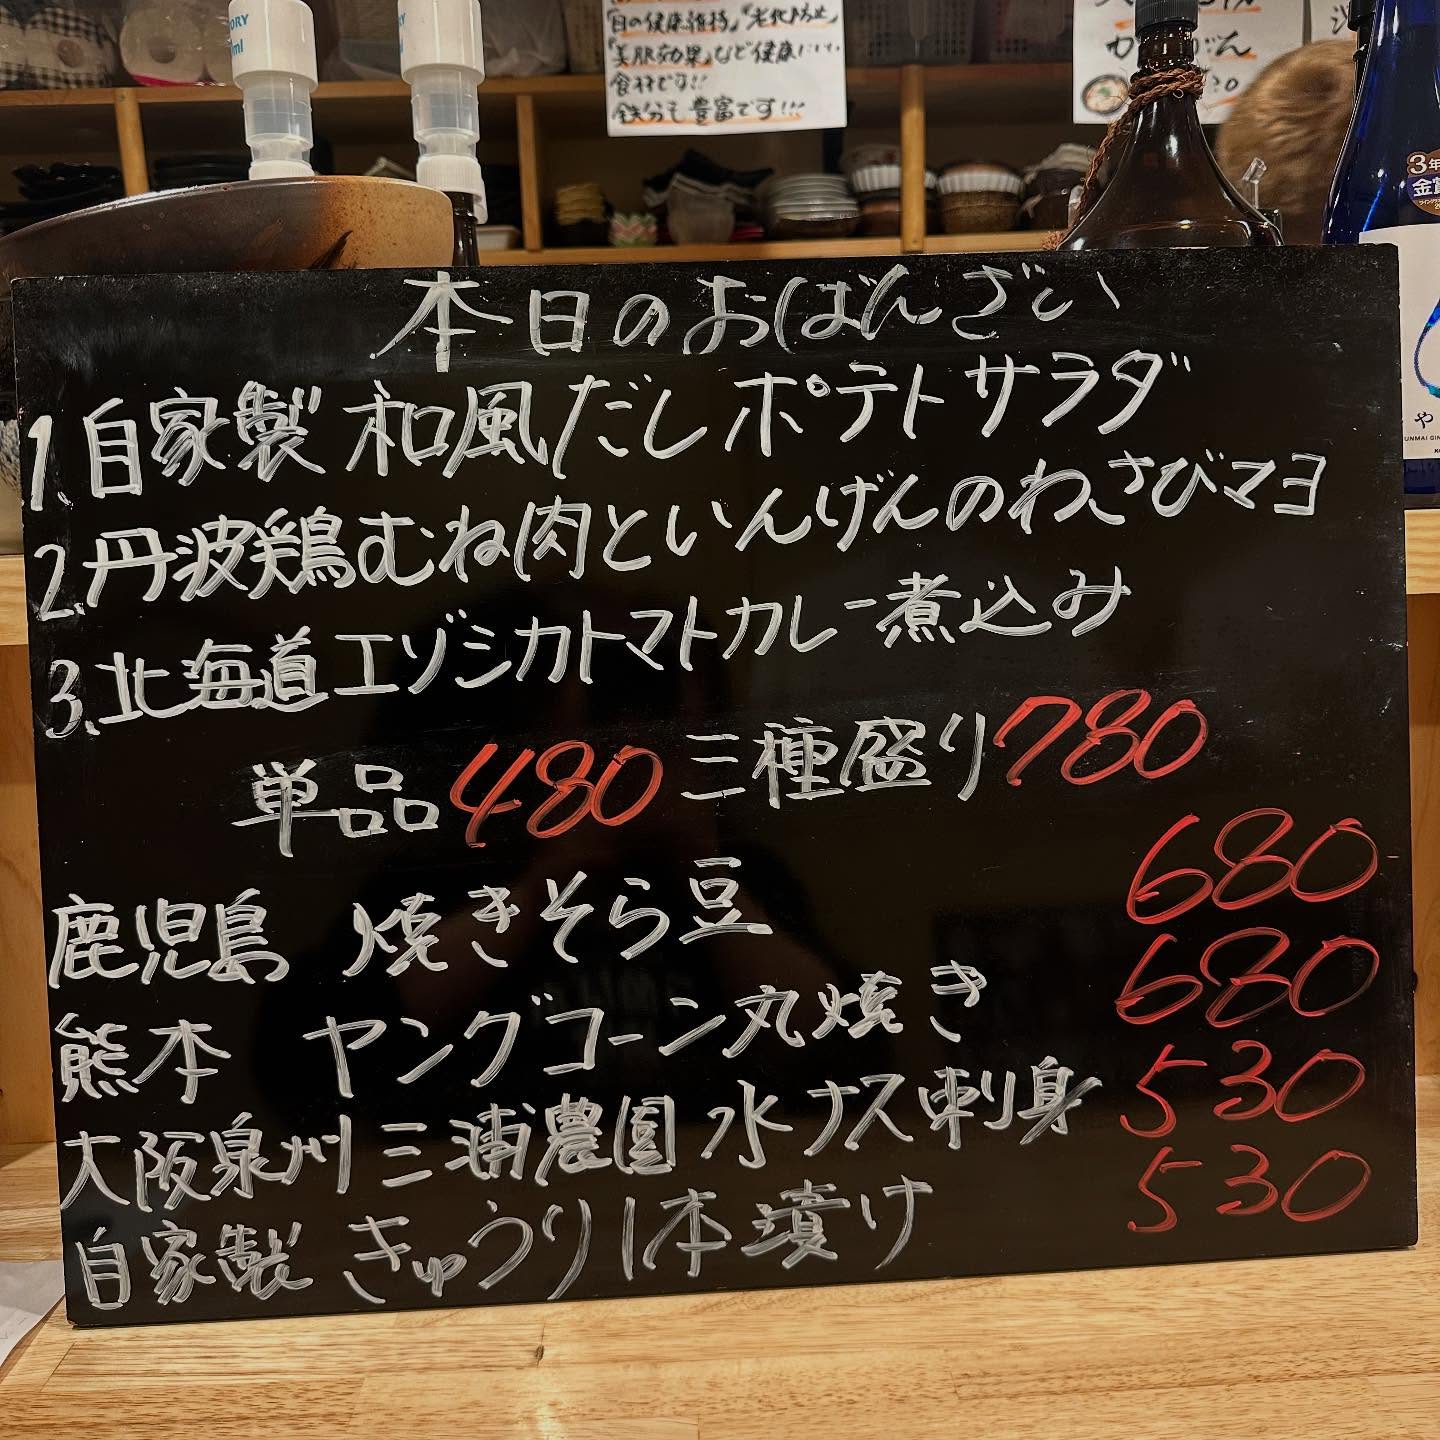 ORY
ml
「目の健康維持」「老化防止」
「美肌効果」など健康にいい
食材です!!
鉄分も豊富です!!!
3年
金賞
や
本日のおばんざい
1.自家製 和風だしポテトサラダ
2.丹波鶏むね肉といんげんのわさびマヨ
3.北海道エゾシカトマトカレー煮込み
単品480 三種盛り780
鹿児島 焼きそら豆 680
熊本 ヤングコーン丸焼き 680
大阪泉州 三浦農園 水ナス刺身 530
自家製 きゅうり1本漬け 530